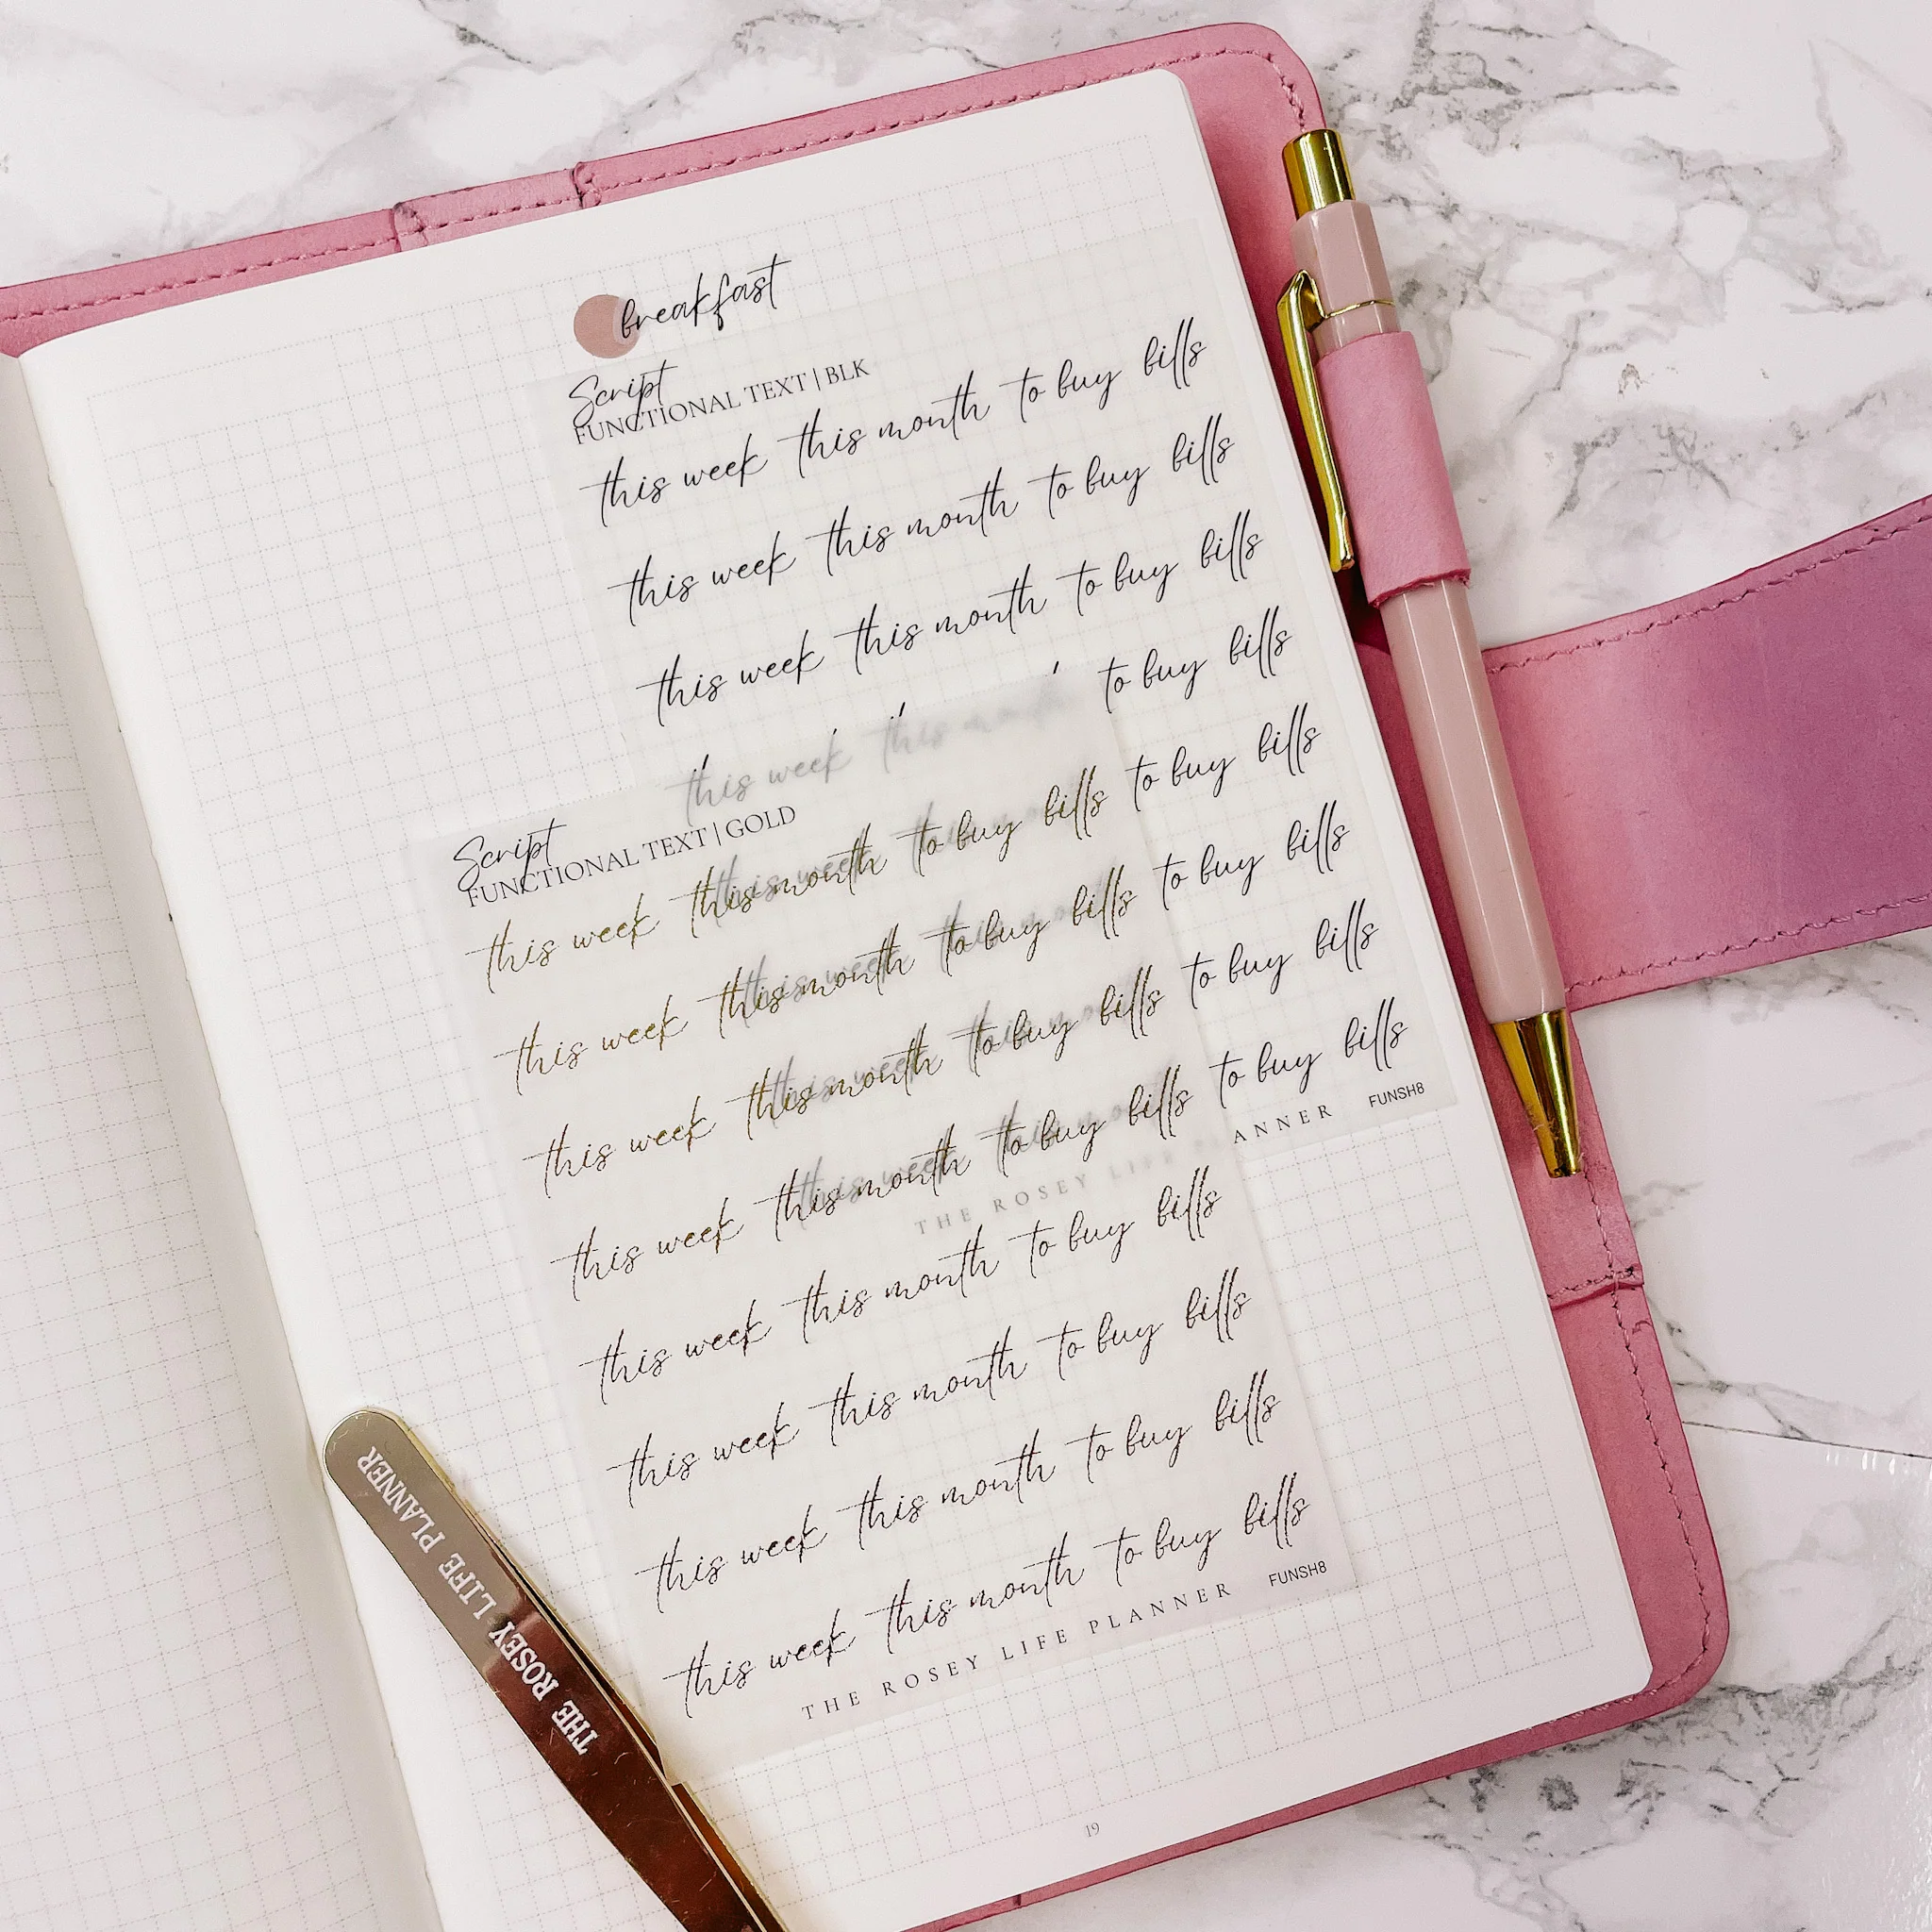 breakfast
Script
FUNCTIONAL TEXT | BLK
this week this month to buy bills
this week this month to buy bills
this week this month to buy bills
this week this month to buy bills
to buy bills
to buy bills
to buy bills
to buy bills
THE ROSEY LIFE PLANNER FUNSH8
Script
FUNCTIONAL TEXT | GOLD
this week this month to buy bills
this week this month to buy bills
this week this month to buy bills
this week this month to buy bills
this week this month to buy bills
this week this month to buy bills
this week this month to buy bills
this week this month to buy bills
THE ROSEY LIFE PLANNER FUNSH8
THE ROSEY LIFE PLANNER
19